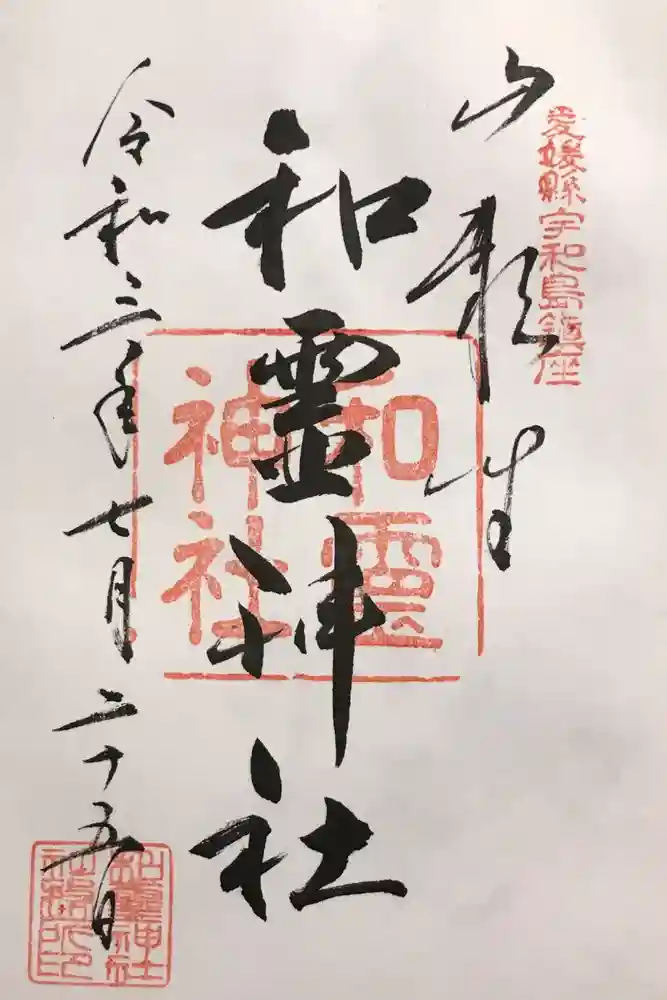 愛媛縣宇和島鎮座
和霊神社
和霊神社
令和三年七月二十五日
和霊神社
社務所印